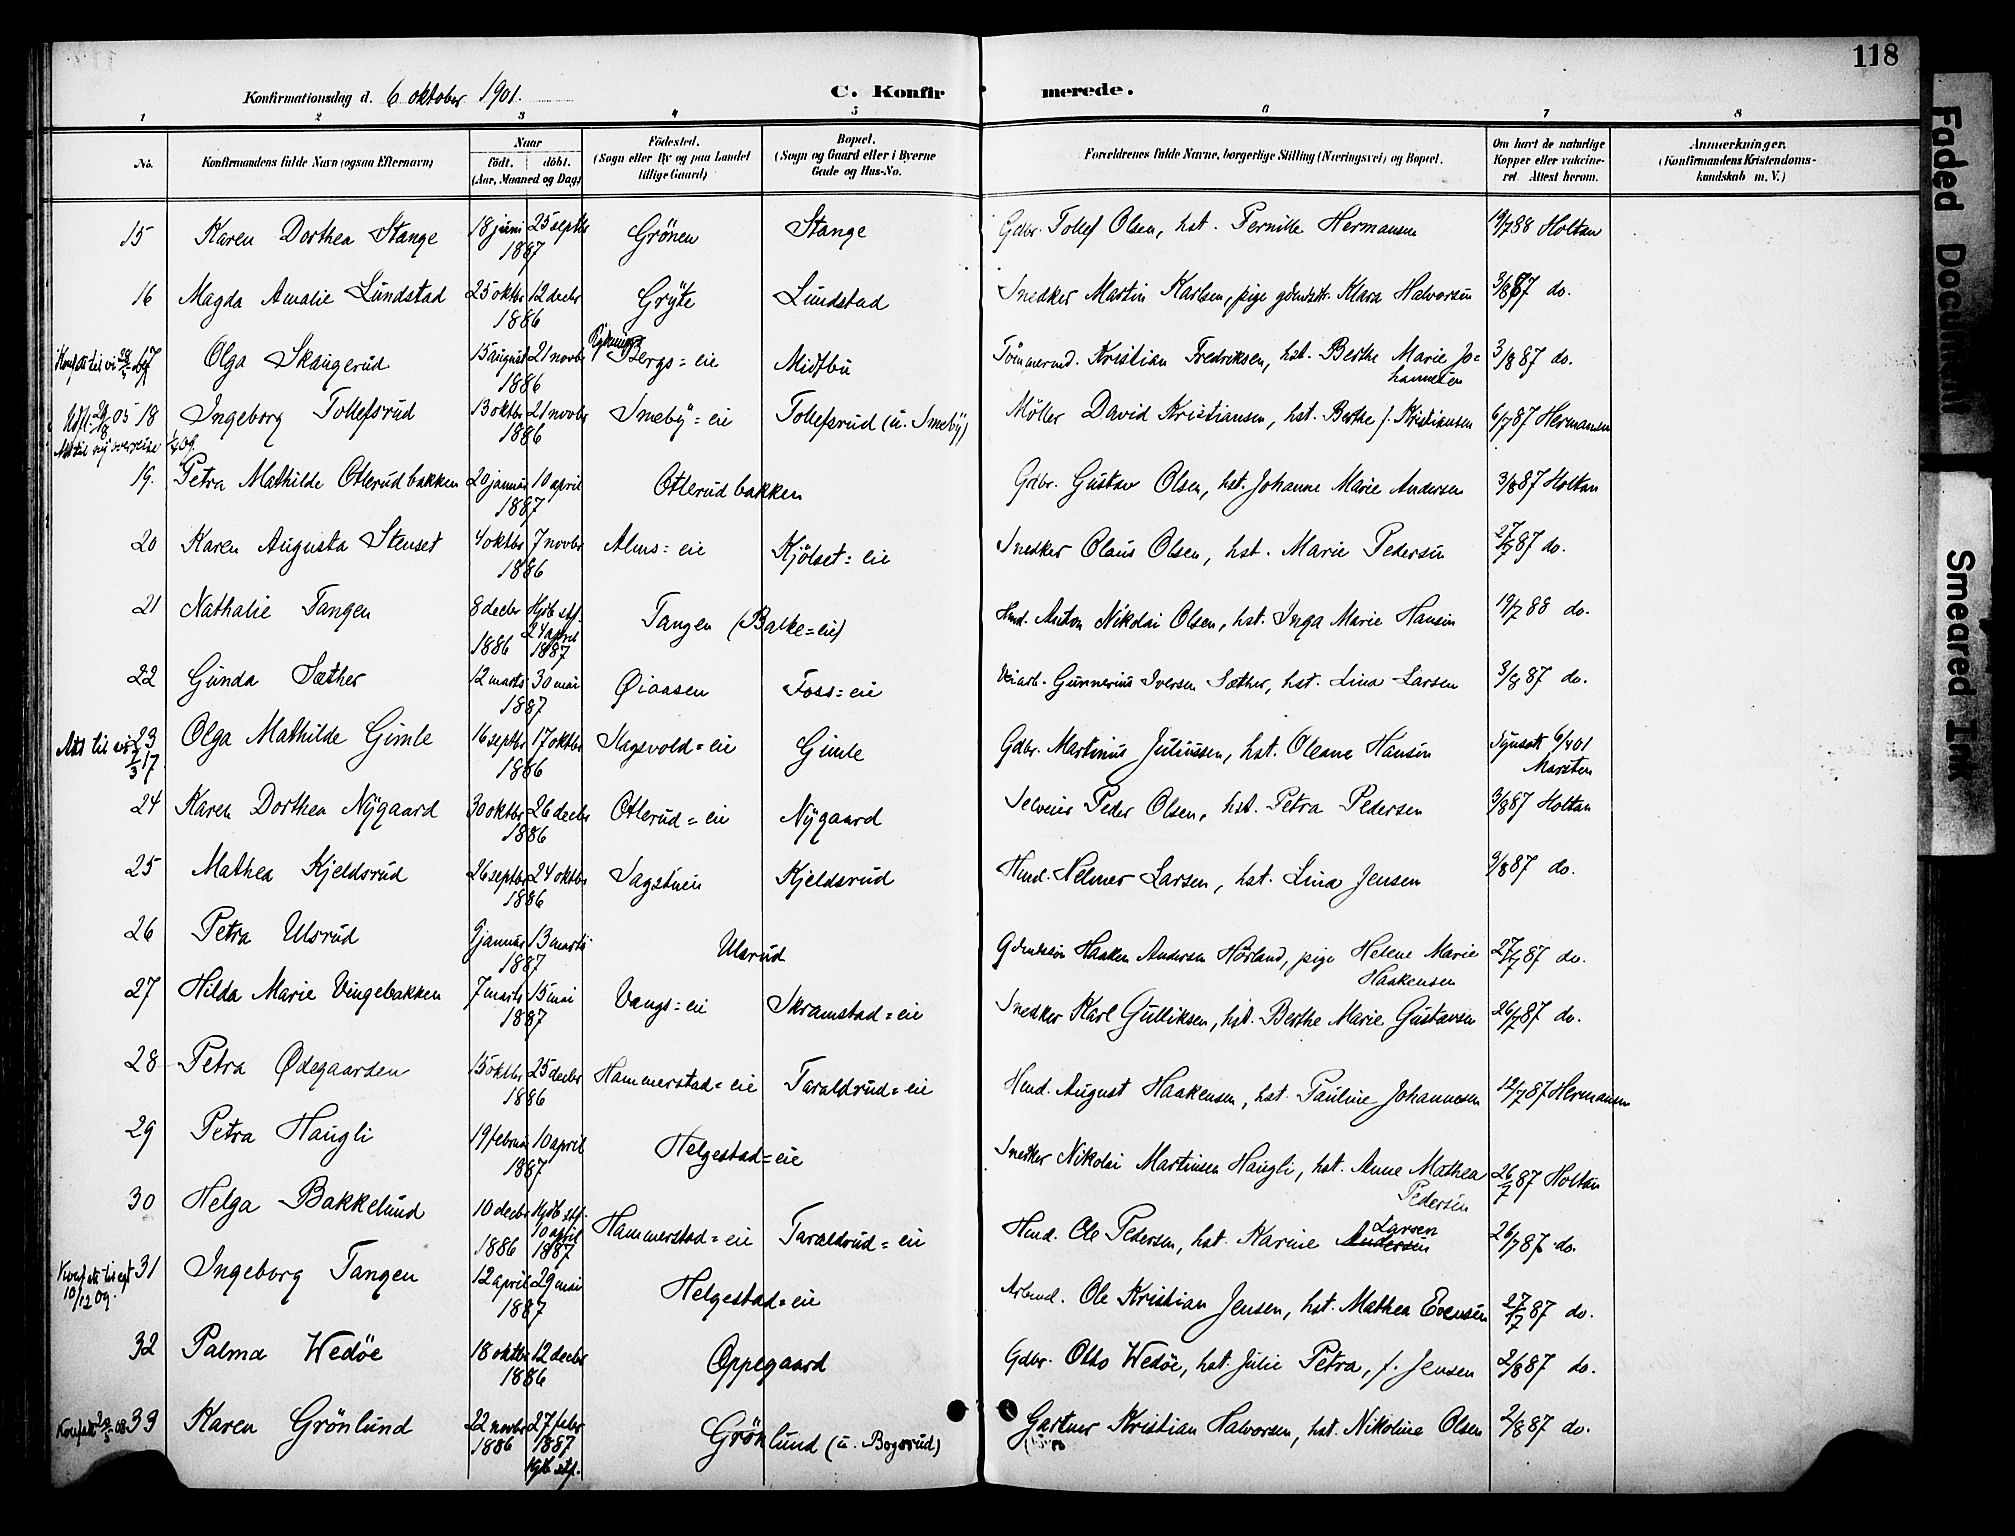 118
Konfirmationsdag d. 6 oktober 1901.
C. Konfir merede.
1 2 3 4 5 6 7 8
No.
Konfirmandens fulde Navn (ogsaa Efternavn)
Naar
födt. döbt.
(Aar, Maaned og Dag)
Födested.
(Sogn eller By og paa Landet
tillige Gaard)
Bopæl.
(Sogn og Gaard eller i Byerne
Gade og Hus-No.
Forældrenes fulde Navne, borgerlige Stilling (Næringsvei) og Bopæl.
Om havt de naturlige
Kopper eller vakcine-
ret. Attest herom.
Anmærkninger.
(Konfirmandens Kristendoms-
kundskab m. V.)
15 Karen Dorthea Stange 18 juni 25 septbr 1887 Grönen Stange Gdbr. Tollef Olsen, hst. Pernille Hermansen 19/7 88 Holtan
16 Magda Amalie Lundstad 25 oktbr 12 decbr 1886 Gryte Lundstad Snedker Martin Karlsen, pige gdmdstr. Klara Halvorsen 3/8 87 do.
17 Olga Skaugerud 15 august 21 novbr 1886 Bergs=eie Midtbu Tömmermd. Kristian Fredriksen, hst. Berthe Marie Jo=
hannesen 3/8 87 do.
18 Ingeborg Tollefsrud 13 oktbr 21 novbr 1886 Smeby=eie Tollefsrud (u. Smeby) Möller David Kristiansen, hst. Berthe f. Kristiansen 6/7 87 Hermansen
19. Petra Mathilde Otlerudbakken 20 januar 10 april 1887 Otlerudbakken Gdbr. Gustav Olsen, hst. Johanne Marie Andersen 3/8 87 Holtan
20 Karen Augusta Stenset 4 oktbr 7 novbr 1886 Alms=eie Kjölset=eie Snedker Olaus Olsen, hst. Marie Pedersen 27/7 87 do.
21 Nathalie Tangen 8 decbr 1886 Hjdb. stf. 24 april 1887 Tangen (Balke=eie) Hmd. Anton Nikolai Olsen, hst. Inga Marie Hansen 19/7 88 do.
22 Gunda Sæther 12 marts 30 mai 1887 Øiaasen Foss=eie Veiarb. Gunnerius Iversen Sæther, hst. Lina Larsen 3/8 87 do.
23 Olga Mathilde Gimle 16 septbr 17 oktbr 1886 Hagsvold=eie Gimle Gdbr. Martinus Juliussen, hst. Oleane Hansen Synsatt 6/4 01
Marsten
24 Karen Dorthea Nygaard 30 oktbr 26 decbr 1886 Otlerud=eie Nygaard Selveier Peder Olsen, hst. Petra Pedersen 3/8 87 Holtan
25 Mathea Kjeldsrud 26 septbr 24 oktbr 1886 Sagstuen Kjeldsrud Hmd. Nelmer Larsen, hst. Lina Jensen 3/8 87 do.
26 Petra Ulsrud 9 januar 13 marts 1887 Ulsrud Gdmdssön Haaken Andersen Hörland, pige Helene Marie
Haakensen 27/7 87 do.
27 Hilda Marie Vingebakken 7 marts 15 mai 1887 Vangs=eie Skramstad=eie Snedker Karl Gulliksen, hst. Berthe Marie Gustavsen 26/7 87 do.
28 Petra Ødegaarden 15 oktbr 25 decbr 1886 Hammerstad=eie Taraldrud=eie Hmd. August Haakensen, hst. Pauline Johannesen 12/7 87 Hermansen
29 Petra Haugli 19 februar 10 april 1887 Helgestad=eie Snedker Nikolai Martinsen Haugli, hst. Anne Mathea
Pedersen 26/7 87 Holtan
30 Helga Bakkelund 10 decbr 1886 Hjdb. stf. 10 april 1887 Hammerstad=eie Taraldrud=eie Hmd. Ole Pedersen, hst. Karine Andersen Larsen 26/7 87 do.
31 Ingeborg Tangen 12 april 29 mai 1887 Helgestad=eie Arbmd. Ole Kristian Jensen, hst. Mathea Evensen 27/7 87 do.
10/12 09.
32 Palma Wedöe 18 oktbr 12 decbr 1886 Oppegaard Gdbr. Otto Wedöe, hst. Julie Petra, f. Jensen 2/8 87 do.
33 Karen Grönlund 22 novbr 1886 27 febr 1887 Hjdb stf. Grönlund (u. Bogsrud) Gartner Kristian Halvorsen, hst. Nikoline Olsen 2/8 87 do.
Faded Document
Smeared Ink